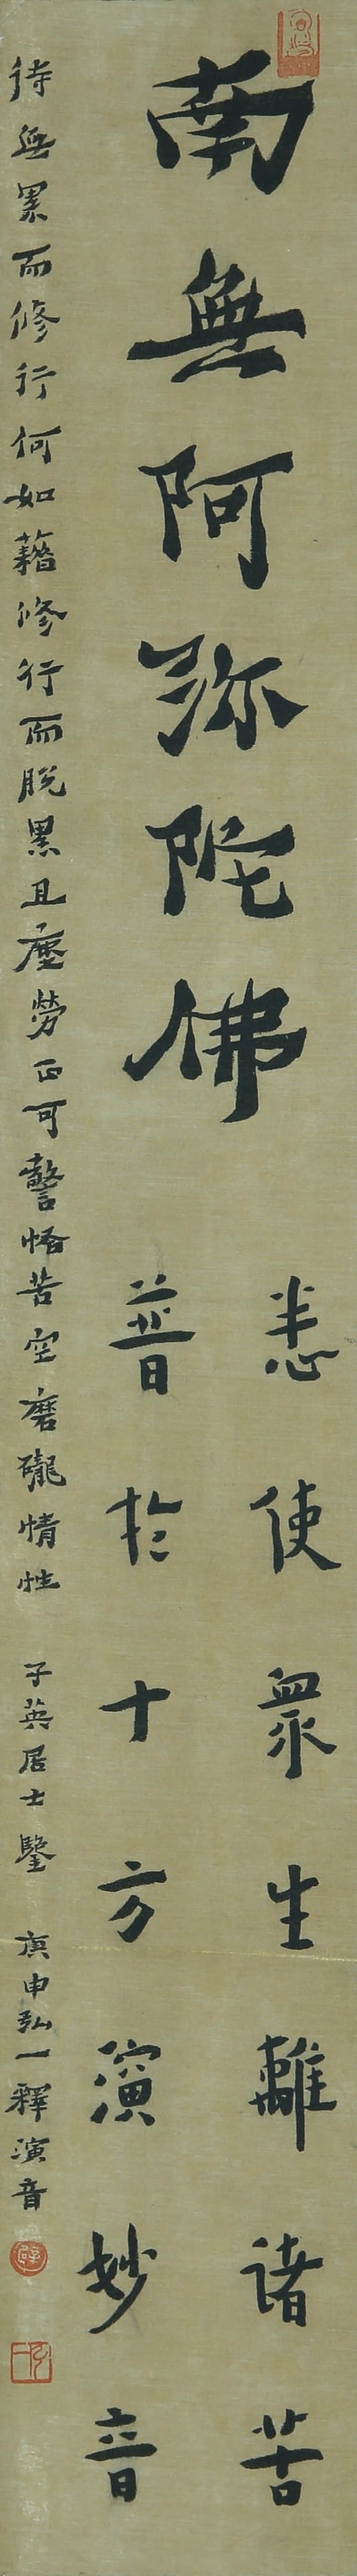 南無阿弥陀佛
悉使眾生離諸苦
普於十方演妙音
待無累而修行何如藉修行而脫累且塵勞正可警悟苦空磨礲情性
子英居士鑒
庚申弘一釋演音